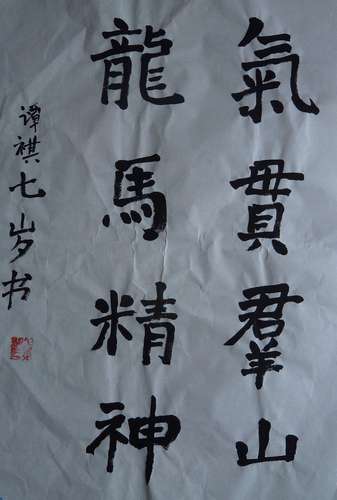 氣貫羣山
龍馬精神
谭祺七岁书